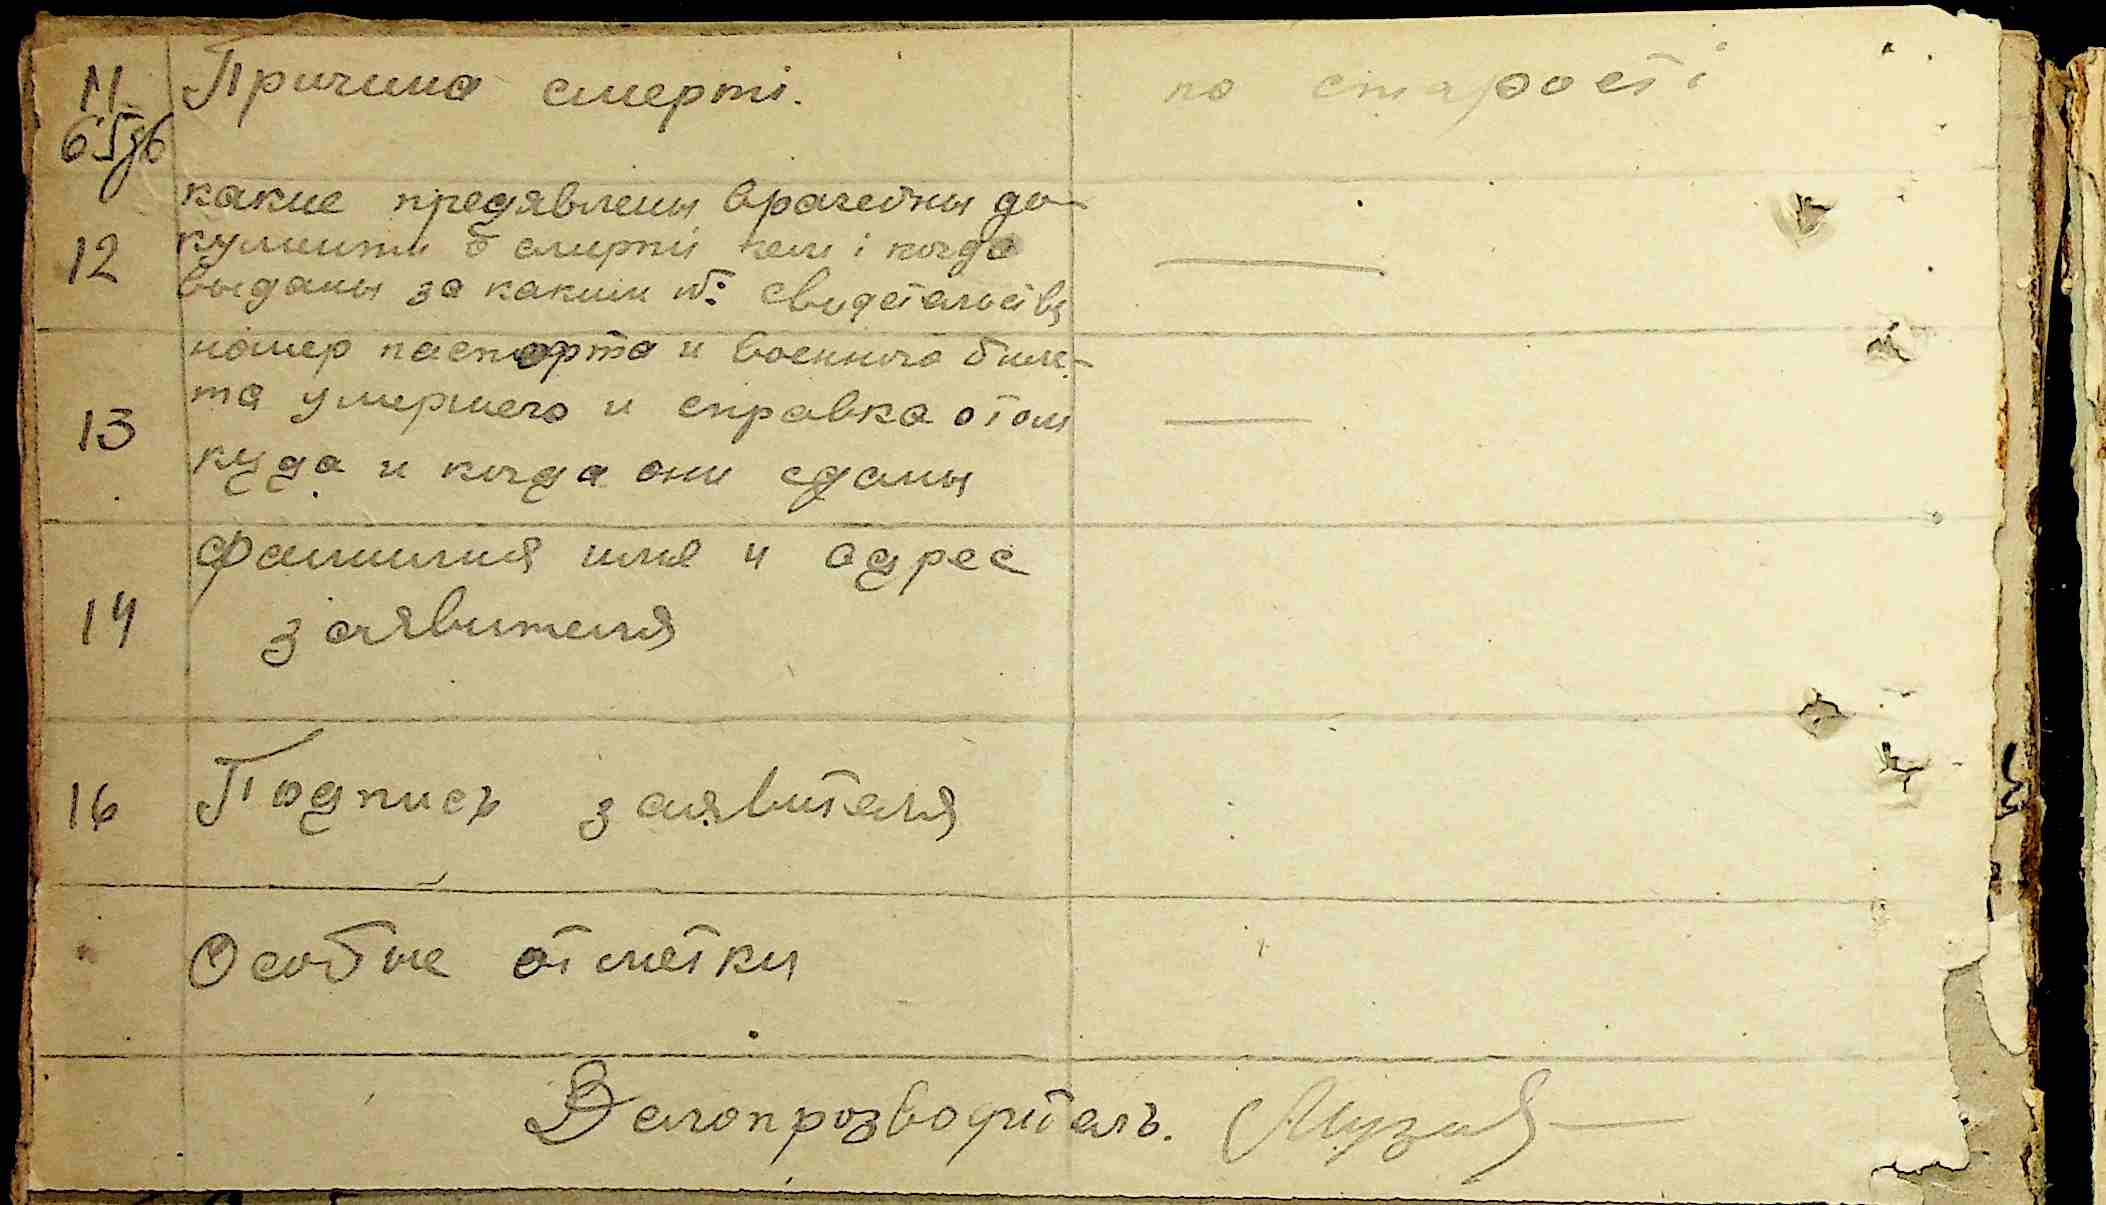 11 Причина смерті. по старості
б
какие предявлены врачебны до-
12 кументи о смерти кем і когда
выданы за каким №: свидетельств
номер паспорта и военного биле-
13 та умершего и справка отом
куда и когда они сданы
фамилия имя и адрес
14 заявителя
16 Подпись заявителя
" Особые отметки
Делопрозводитель.